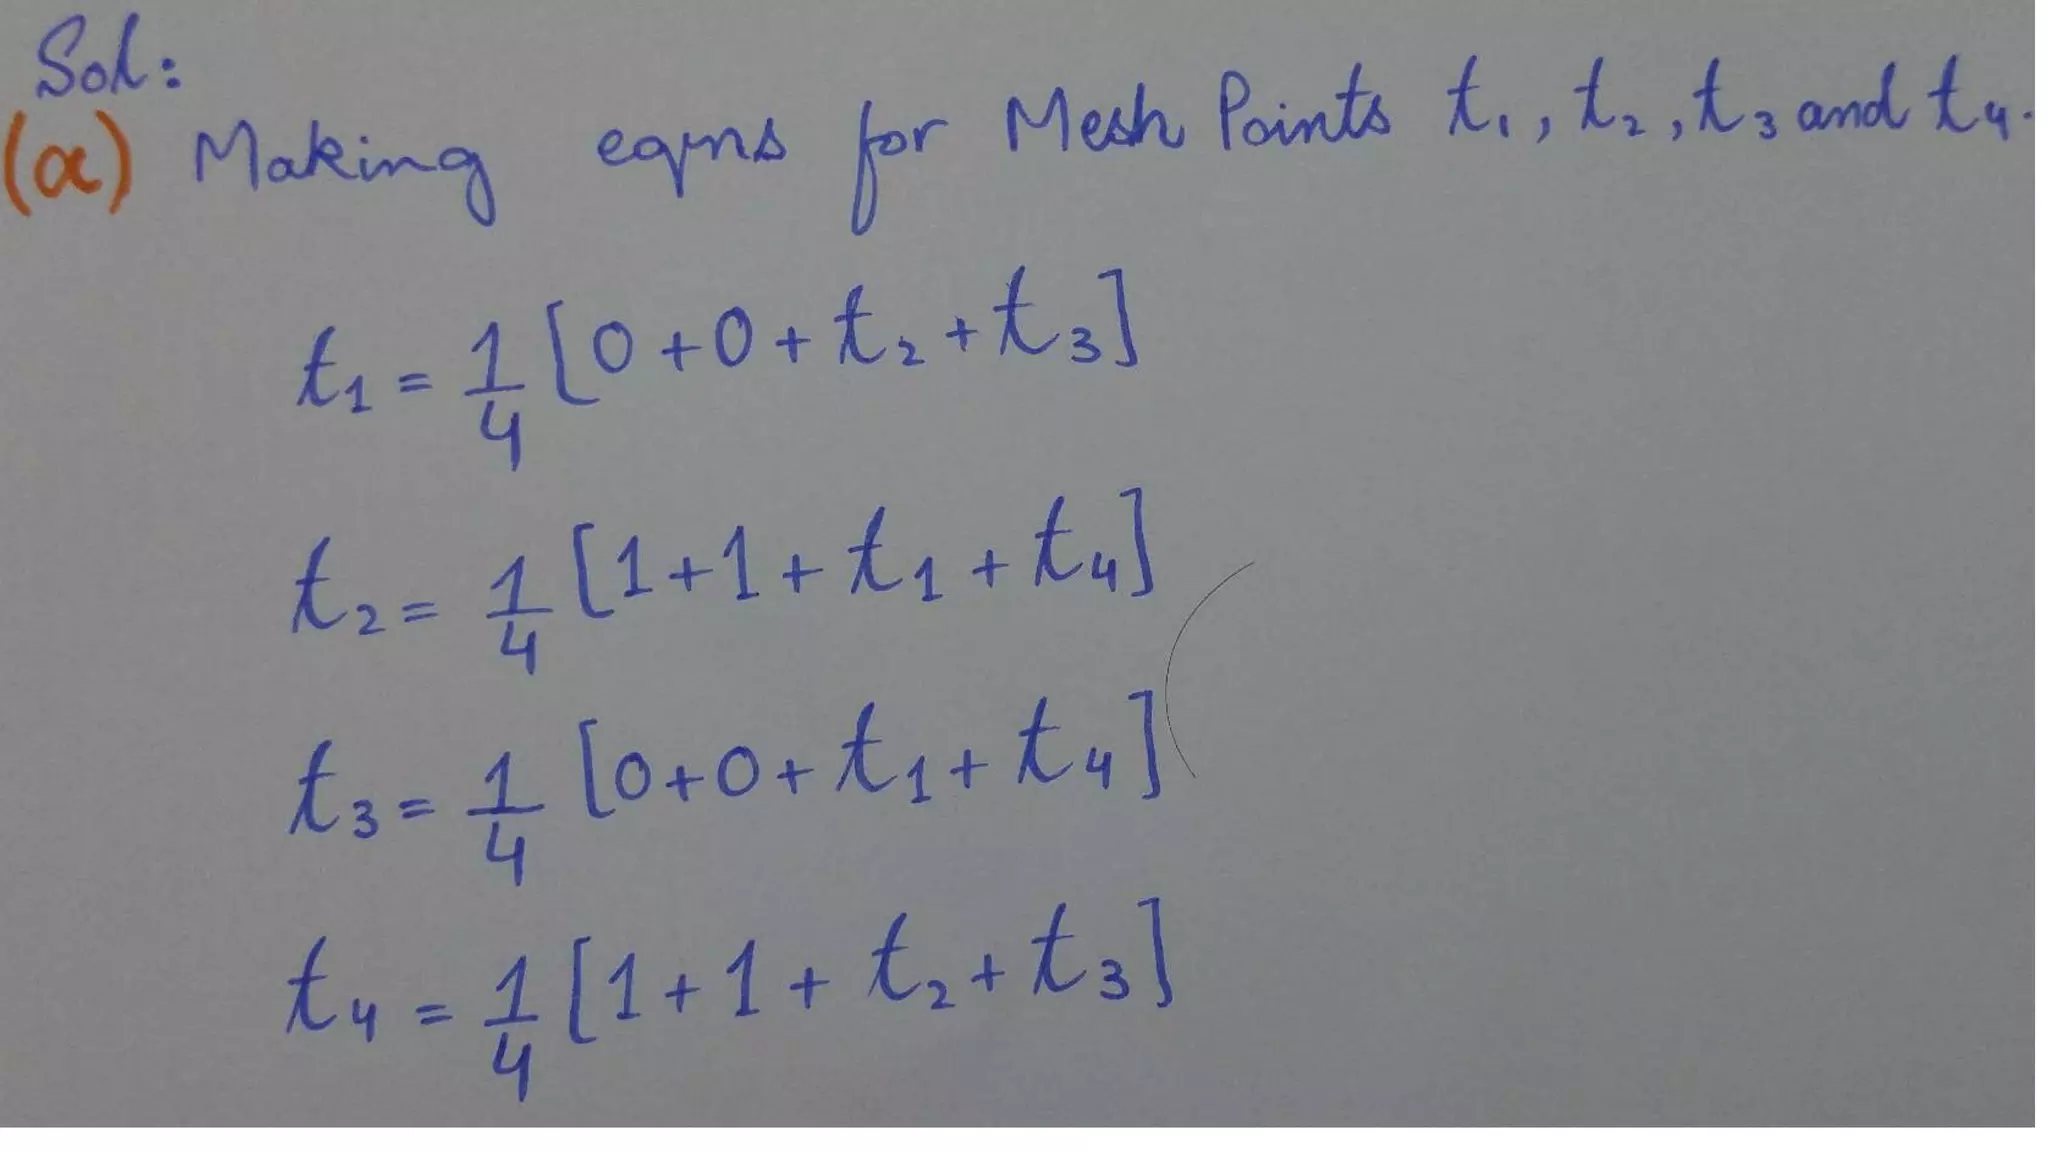 Sol:
(a) Making eqns for Mesh Points t₁, t₂, t₃ and t₄.
t₁ = 1/4 [0+0+t₂+t₃]
t₂ = 1/4 [1+1+t₁+t₄]
t₃ = 1/4 [0+0+t₁+t₄]
t₄ = 1/4 [1+1+t₂+t₃]